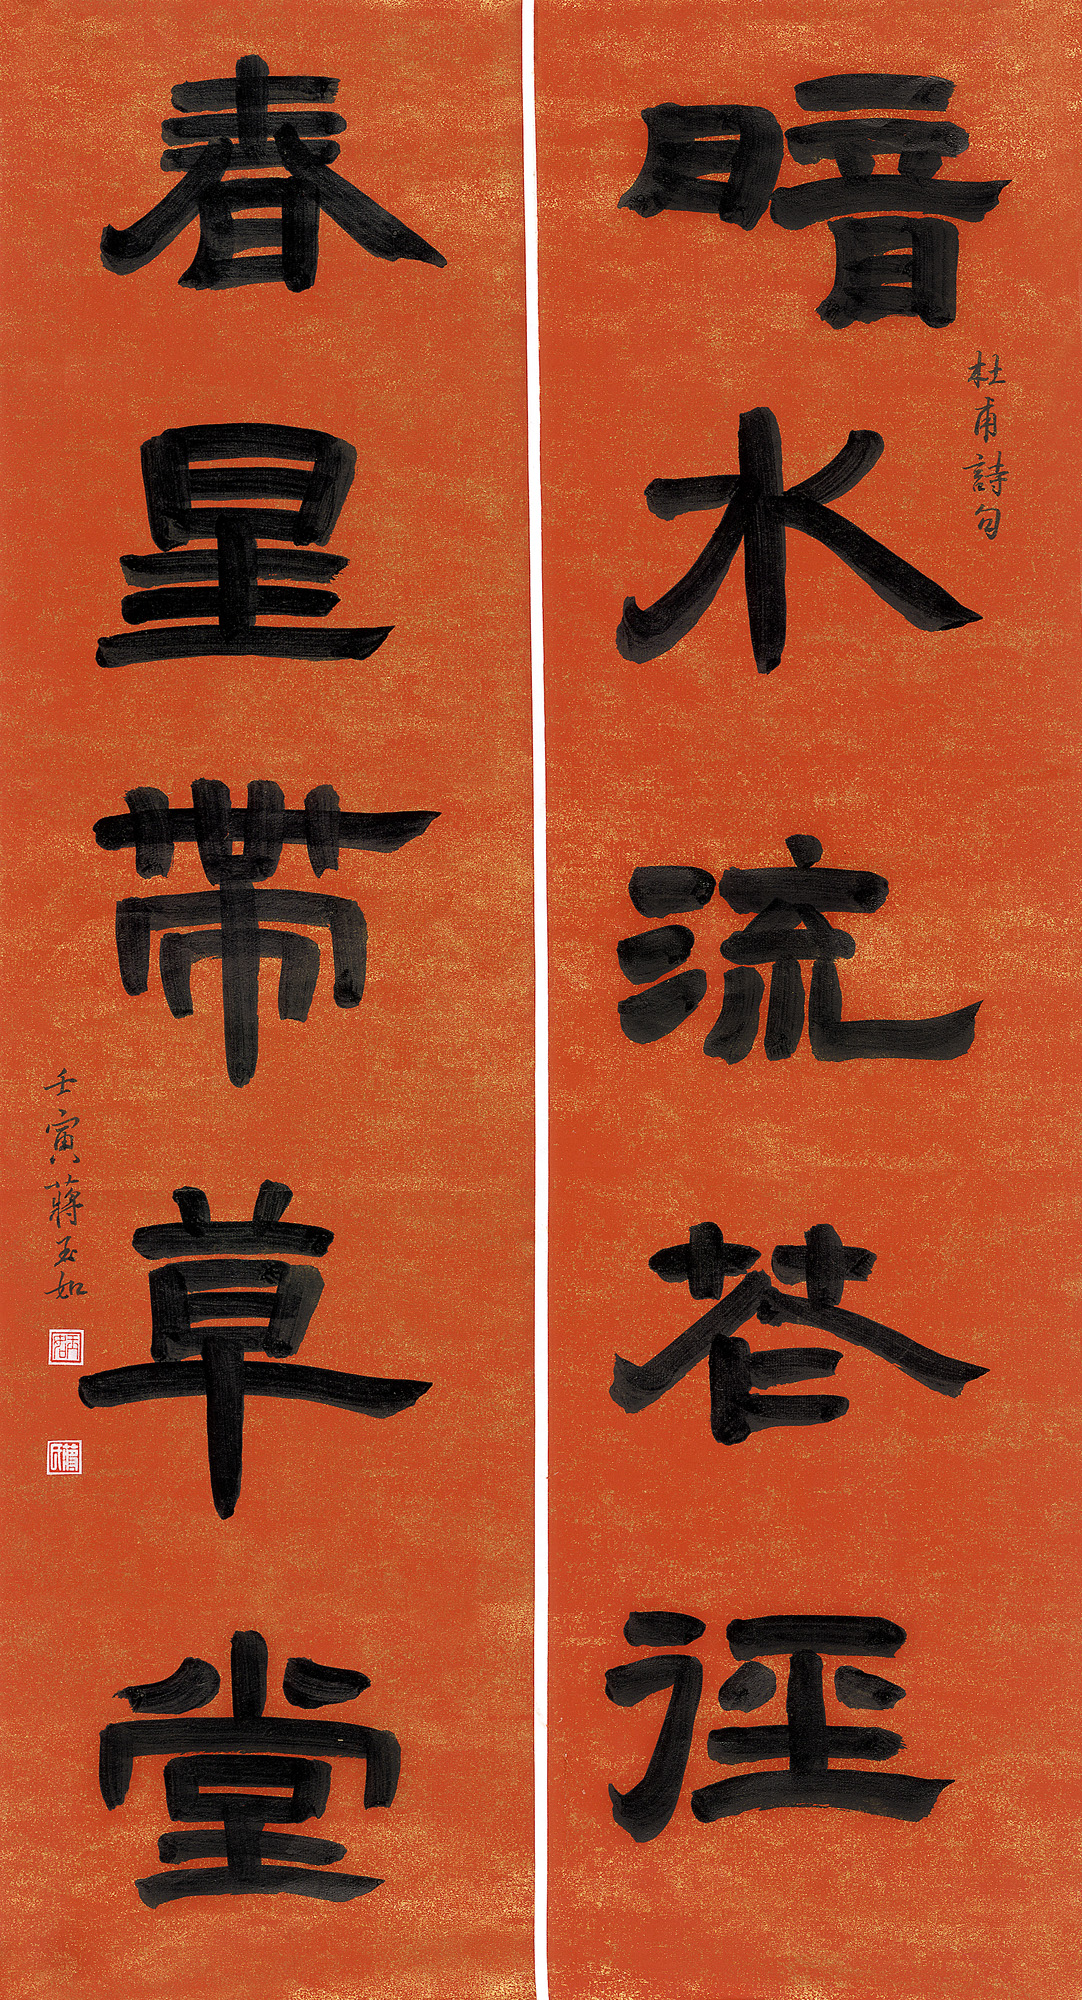 暗水流花徑
杜甫詩句
春星帶草堂
壬寅蔣玉如
玉如
蔣氏